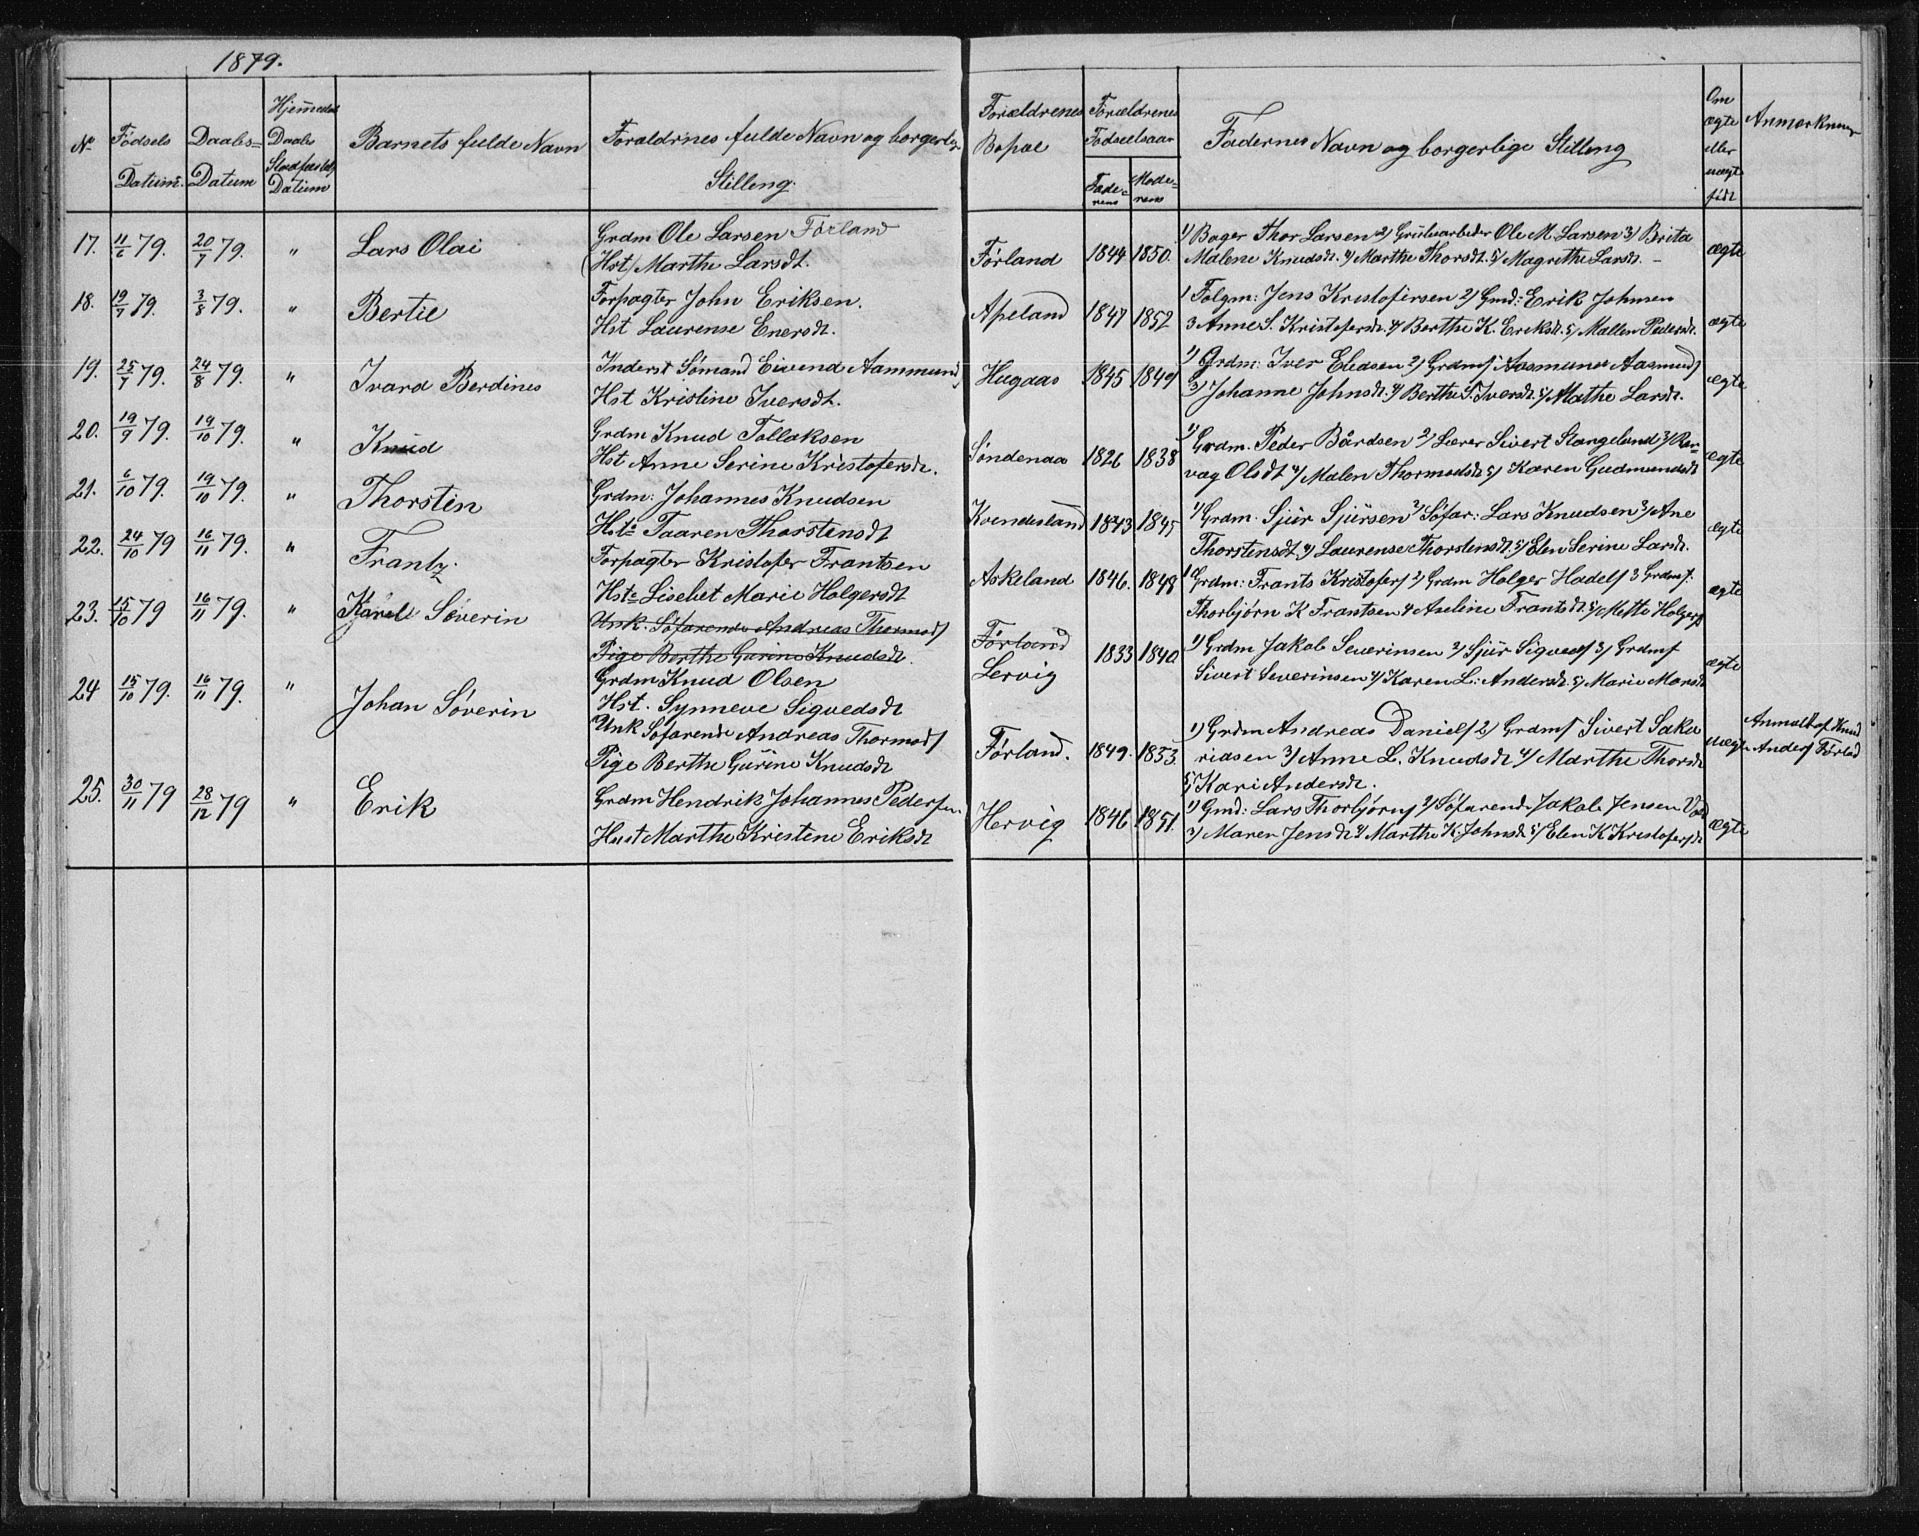 1879.
No
Fødsels Datum.
Daabs= Datum
Hjemmedaab Daabs Stadfæstet Datum
Barnets fulde Navn
Forældrnes fulde Navn og borgerlige Stilling.
Forældrenes Bopæl
Forældrenes Fødselsaar
Fade-rens
Mode-rens
Fadernes Navn og borgerlige Stilling
Om ægte eller uægte født
Anmærkning
17. 11/6 79. 20/7 79. " Lars Olai
Grdm Ole Larsen Førland
(Hst) Marthe Larsdt.
Førland 1844 1850.
1) Bager Thor Larsen 2) Grubearbeder Ole M. Larsen 3) Brita
Malene Knudsdt. 4) Marthe Thorsdt. 5) Magrethe Larsdt. –
ægte
18. 19/7 79. 3/8 79. " Bertil
Forpagter John Eriksen.
Hst Laurense Enersdt.
Apeland 1847 1852
1 Folgm: Jens Kristofersen 2) Gmd: Erik Johnsen
3 Anne S. Kristofersdt. 4) Berthe K. Eriksdt. 5) Mallen Pedersdt.
ægte
19. 25/7 79. 24/8 79. " Ivard Berdines
Inderst Sømand Eivend Aammund)
Hst Kristine Iversdt.
Hugaas 1845 1849
1) Grdm: Iver Eliasen 2) Grdms Aasmund Aasmund)
3) Johanne Johnsdt. 4) Berthe S. Iversdt. 5) Mathe Larsdt.
ægte
20. 19/9 79. 19/10 79. " Knud
Grdm Knud Tollaksen
Hst Anne Serine Kristofersdt.
Søndenaa 1826 1838
1) Grdm. Peder Bårdsen 2) Lærer Sivert Stangeland 3) Ran-
vag Olsdt 4) Malen Thormodsdt 5) Karen Gudmundsdt
ægte
21. 6/10 79. 19/10 79. " Thorstin
Grdm: Johannes Knudsen
Hst: Taaren Thorstensdt
Kvendesland 1843 1845
1) Grdm. Sjur Sjursen 2) Søfar: Lars Knudsen 3) Ane
Thorstensdt. 4) Laurense Thorstensdt. 5) Elen Serine Larsdt.
ægte
22. 24/10 79 16/11 79. " Frantz.
Forpagter Kristofer Frantsen
Hst: Lisebet Marie Holgersdt
Askeland 1846. 1848
1 Grdm: Frants Kristofers 2) Grdm Holger Hadels 3 Grdms.
Thorbjørn K Frantsen 4 Aneline Frantsdt. 5) Mette Holgers
ægte
23. 15/10 79 16/11 79. " Karel Søverin
Unk. Søfarende Andreas Thormods
Pige Berthe Gurine Knudsdt.
Grdm Knud Olsen
Hst. Synneve Sigvedsdt
Førland
Lervig 1833 1840
1) Grdm Jakob Severinsen 2) Sjur Sigveds 3) Grdms
Sivert Severinsen 4) Karen L. Andersdt 5) Marie Monsdt
ægte
24 15/10 79. 16/11 79. " Johan Søverin
Unk Søfarende Andreas Thormods
Pige Berthe Gurine Knudsdt
Førland. 1849. 1853.
1) Grdm Andreas Daniels 2) Grdms Sivert Saka
riasen 3) Anne L. Knudsdt 4) Marthe Thorsdt
5) Kari Andersdt.
uægte
Anmeldt af Knud
Anders Førlad
25. 30/11 79 28/12 79 " Erik
Grdm Hendrik Johannes Pedersen.
Hust Marthe Kristene Eriksdt
Hervig 1846 1851.
1) Gmd: Lars Thorbjørns 2) Søfarende Jakob Jensen
3) Maren Jensdt 4) Marthe K. Johnsdt 5) Elen K Kristofersdt
ægte